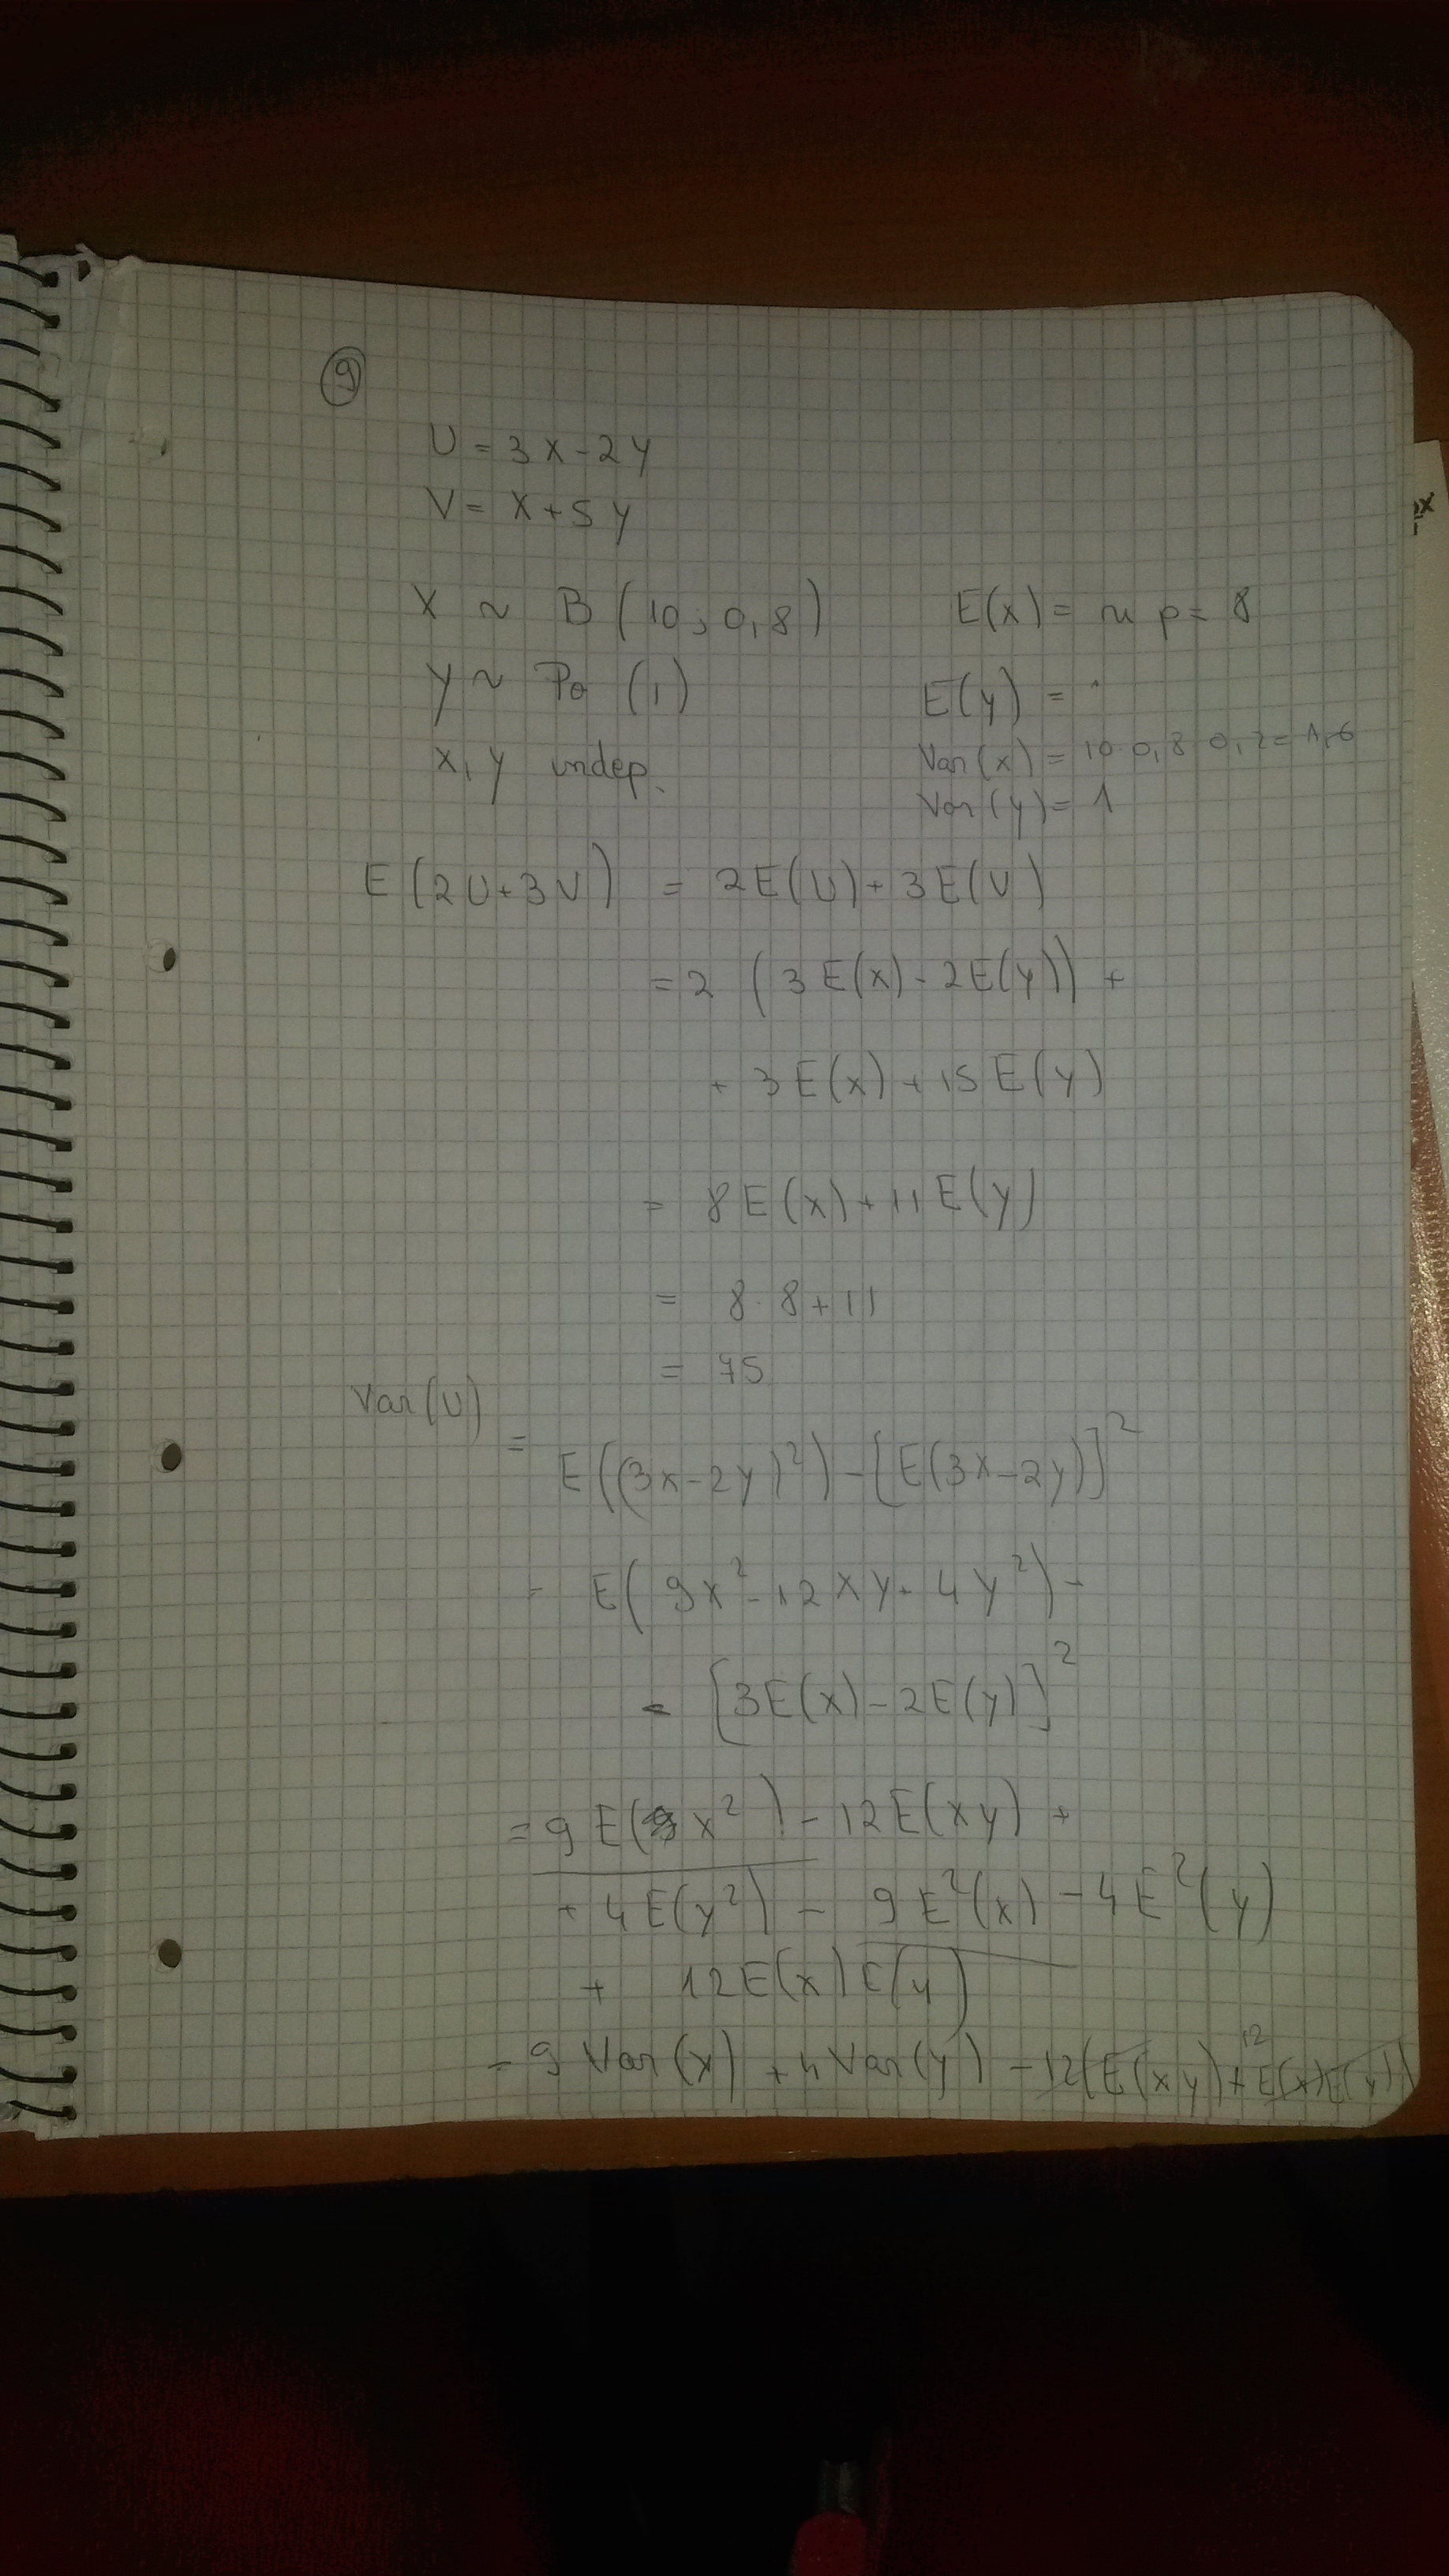 9
U = 3x-2y
V = x+5y
X ~ B(10; 0,8) E(x) = n p = 8
y ~ Po (1) E(y) = 1
x, y indep. Var(x) = 10 · 0,8 · 0,2 = 1,6
Var(y) = 1
E(2U+3V) = 2E(U) + 3E(V)
= 2 (3E(x) - 2E(y)) +
+ 3E(x) + 15E(y)
= 8E(x) + 11E(y)
= 8 · 8 + 11
= 75
Var(U) =
E((3x-2y)²) - [E(3x-2y)]²
= E(9x² - 12xy + 4y²) -
- [3E(x) - 2E(y)]²
= 9E(x²) - 12E(xy) +
+ 4E(y²) - 9E²(x) - 4E²(y)
+ 12E(x)E(y)
= 9Var(x) + 4Var(y) - 12(E(xy) + 12 E(x)E(y))